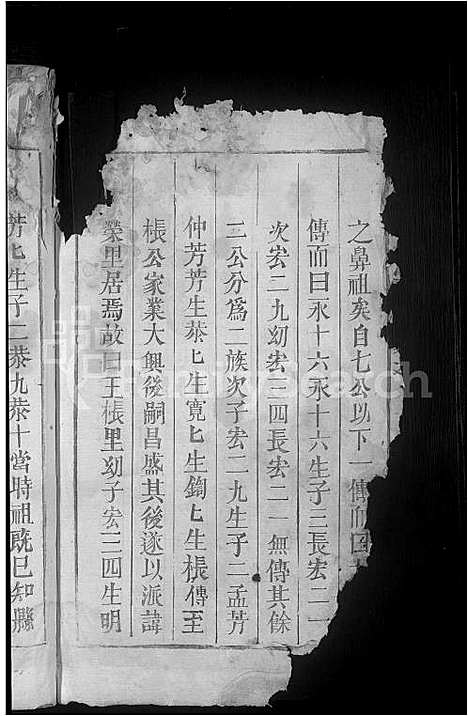 之鼻祖矣自七公以下一傳而曰
傳而曰永十六永十六生子三長宏二一
次宏二九幼宏三四長宏二一無傳其餘
二公分爲二族次子宏二九生子二孟芳
仲芳芳生恭匕生寬匕生鋾匕生棖傳至
棖公家業大興後嗣昌盛其後遂以派諱
榮里居焉故曰王棖里幼子宏三四生明
芳匕生子二恭九恭十當時祖旣已知縣
FamilySearch